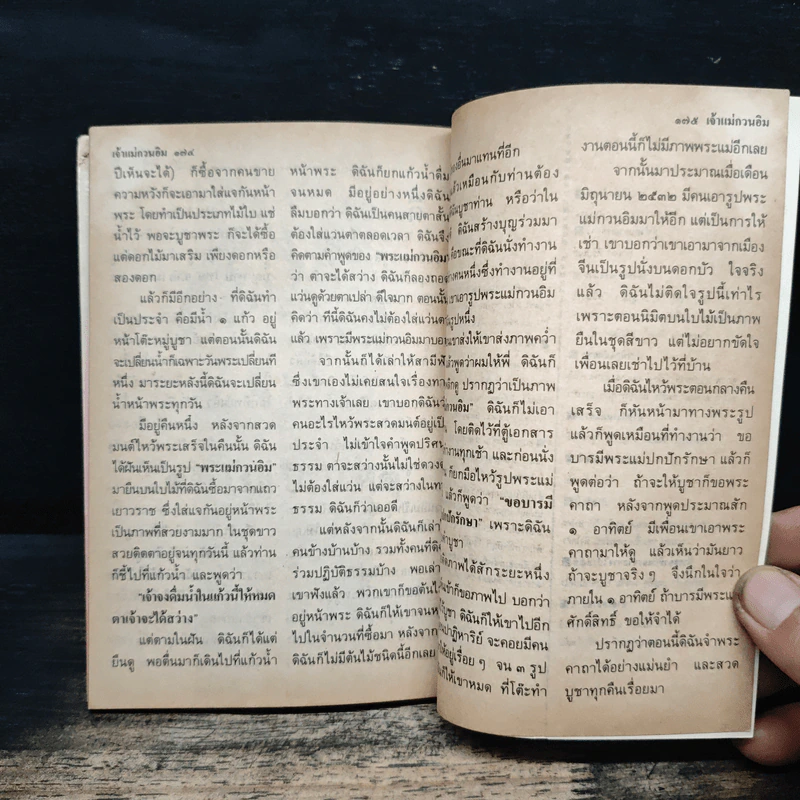 เจ้าแม่กวนอิม ๑๗๔
ปีเห็นจะได้) ก็ซื้อจากคนขาย
ความหวังก็จะเอามาใส่แจกันหน้า
พระ โดยทำเป็นประเภทไม้ใบ แช่
น้ำไว้ พอจะบูชาพระ ก็จะได้ซื้อ
แต่ดอกไม้มาเสริม เพียงดอกหรือ
สองดอก
แล้วก็มีอีกอย่าง ที่ดิฉันทำ
เป็นประจำ คือมีน้ำ ๑ แก้ว อยู่
หน้าโต๊ะหมู่บูชา แต่ตอนนั้นดิฉัน
จะเปลี่ยนน้ำก็เฉพาะวันพระเปลี่ยนที
หนึ่ง มาระยะหลังนี้ดิฉันจะเปลี่ยน
น้ำหน้าพระทุกวัน
มีอยู่คืนหนึ่ง หลังจากสวด
มนต์ไหว้พระเสร็จในคืนนั้น ดิฉัน
ได้ฝันเห็นเป็นรูป "พระแม่กวนอิม"
มายืนบนใบไม้ที่ดิฉันซื้อมาจากแถว
เยาวราช ซึ่งใส่แจกันอยู่หน้าพระ
เป็นภาพที่สวยงามมาก ในชุดขาว
สวยติดตาอยู่จนทุกวันนี้ แล้วท่าน
ก็ชี้ไปที่แก้วน้ำ และพูดว่า
"เจ้าจงดื่มน้ำในแก้วนี้ให้หมด
ตาเจ้าจะได้สว่าง"
แต่ตามในฝัน ดิฉันก็ได้แต่
ยืนดู พอตื่นมาก็เดินไปที่แก้วน้ำ
หน้าพระ ดิฉันก็ยกแก้วน้ำดื่ม
จนหมด มีอยู่อย่างหนึ่งดิฉัน
ลืมบอกว่า ดิฉันเป็นคนสายตาสั้น
ต้องใส่แว่นตาตลอดเวลา ดิฉันจึง
คิดตามคำพูดของ "พระแม่กวนอิม"
ว่า ตาจะได้สว่าง ดิฉันก็ลองถอด
แว่นดูด้วยตาเปล่า ดีใจมาก ตอนนั้น
คิดว่า ทีนี้ดิฉันคงไม่ต้องใส่แว่นตา
แล้ว เพราะมีพระแม่กวนอิมมาบอก
จากนั้นก็ได้เล่าให้สามีฟัง
ซึ่งเขาเองไม่เคยสนใจเรื่องทา
พระทางเจ้าเลย เขาบอกดิฉัน
คนอะไรไหว้พระสวดมนต์อยู่เป็
ประจำ ไม่เข้าใจคำพูดปริศน
ธรรม ตาจะสว่างนั้นไม่ใช่ดวงต
ไม่ต้องใส่แว่น แต่จะสว่างในทา
ธรรม ดิฉันก็ว่าเออดี
แต่หลังจากนั้นดิฉันก็เล่า
คนข้างบ้านบ้าง รวมทั้งคนที่
ร่วมปฏิบัติธรรมบ้าง พอเล่า
เขาฟังแล้ว พวกเขาก็ขอต้นไ
อยู่หน้าพระ ดิฉันก็ให้เขาจนห
ไปในจำนวนที่ซื้อมา หลังจาก
ดิฉันก็ไม่มีต้นไม้ชนิดนี้อีกเลย
๑๗๕ เจ้าแม่กวนอิม
อื่นมาแทนที่อีก
แล้วเหมือนกับท่านต้อง
บูชาท่าน หรือว่าใน
ดิฉันสร้างบุญร่วมมา
คือขณะที่ดิฉันนั่งทำงาน
คนหนึ่งซึ่งทำงานอยู่ที่
เขาเอารูปพระแม่กวนอิม
รูปหนึ่ง
เขาส่งให้เขาส่งภาพคว่ำ
พูดว่าผมให้พี่ ดิฉันก็
ดู ปรากฏว่าเป็นภาพ
กวนอิม" ดิฉันก็ไม่เอา
โดยติดไว้ที่ตู้เอกสาร
งานทุกเช้า และก่อนนั่ง
ก็ยกมือไหว้รูปพระแม่
แล้วก็พูดว่า "ขอบารมี
ปกปักรักษา" เพราะดิฉัน
บูชา
ภาพได้สักระยะหนึ่ง
ก็ขอภาพไป บอกว่า
บูชา ดิฉันก็ให้ไปอีก
ปาฏิหาริย์ จะคอยมีคน
ให้อยู่เรื่อยๆ จน ๓ รูป
ก็ให้เขาหมด ที่โต๊ะทำ
งานตอนนี้ก็ไม่มีภาพพระแม่อีกเลย
จากนั้นมาประมาณเมื่อเดือน
มิถุนายน ๒๕๓๒ มีคนเอารูปพระ
แม่กวนอิมมาให้อีก แต่เป็นการให้
เช่า เขาบอกว่าเขาเอามาจากเมือง
จีนเป็นรูปนั่งบนดอกบัว ใจจริง
แล้ว ดิฉันไม่ติดใจรูปนี้เท่าไร
เพราะตอนนิมิตบนใบไม้เป็นภาพ
ยืนในชุดสีขาว แต่ไม่อยากขัดใจ
เพื่อนเลยเช่าไปไว้ที่บ้าน
เมื่อดิฉันไหว้พระตอนกลางคืน
เสร็จ ก็หันหน้ามาทางพระรูป
แล้วก็พูดเหมือนที่ทำงานว่า ขอ
บารมีพระแม่ปกปักรักษา แล้วก็
พูดต่อว่า ถ้าจะให้บูชาก็ขอพระ
คาถา หลังจากพูดประมาณสัก
๑ อาทิตย์ มีเพื่อนเขาเอาพระ
คาถามาให้ดู แล้วเห็นว่ามันยาว
ถ้าจะบูชาจริงๆ จึงนึกในใจว่า
ภายใน ๑ อาทิตย์ ถ้าบารมีพระแม่
ศักดิ์สิทธิ์ ขอให้จำได้
ปรากฏว่าตอนนี้ดิฉันจำพระ
คาถาได้อย่างแม่นยำ และสวด
บูชาทุกคืนเรื่อยมา